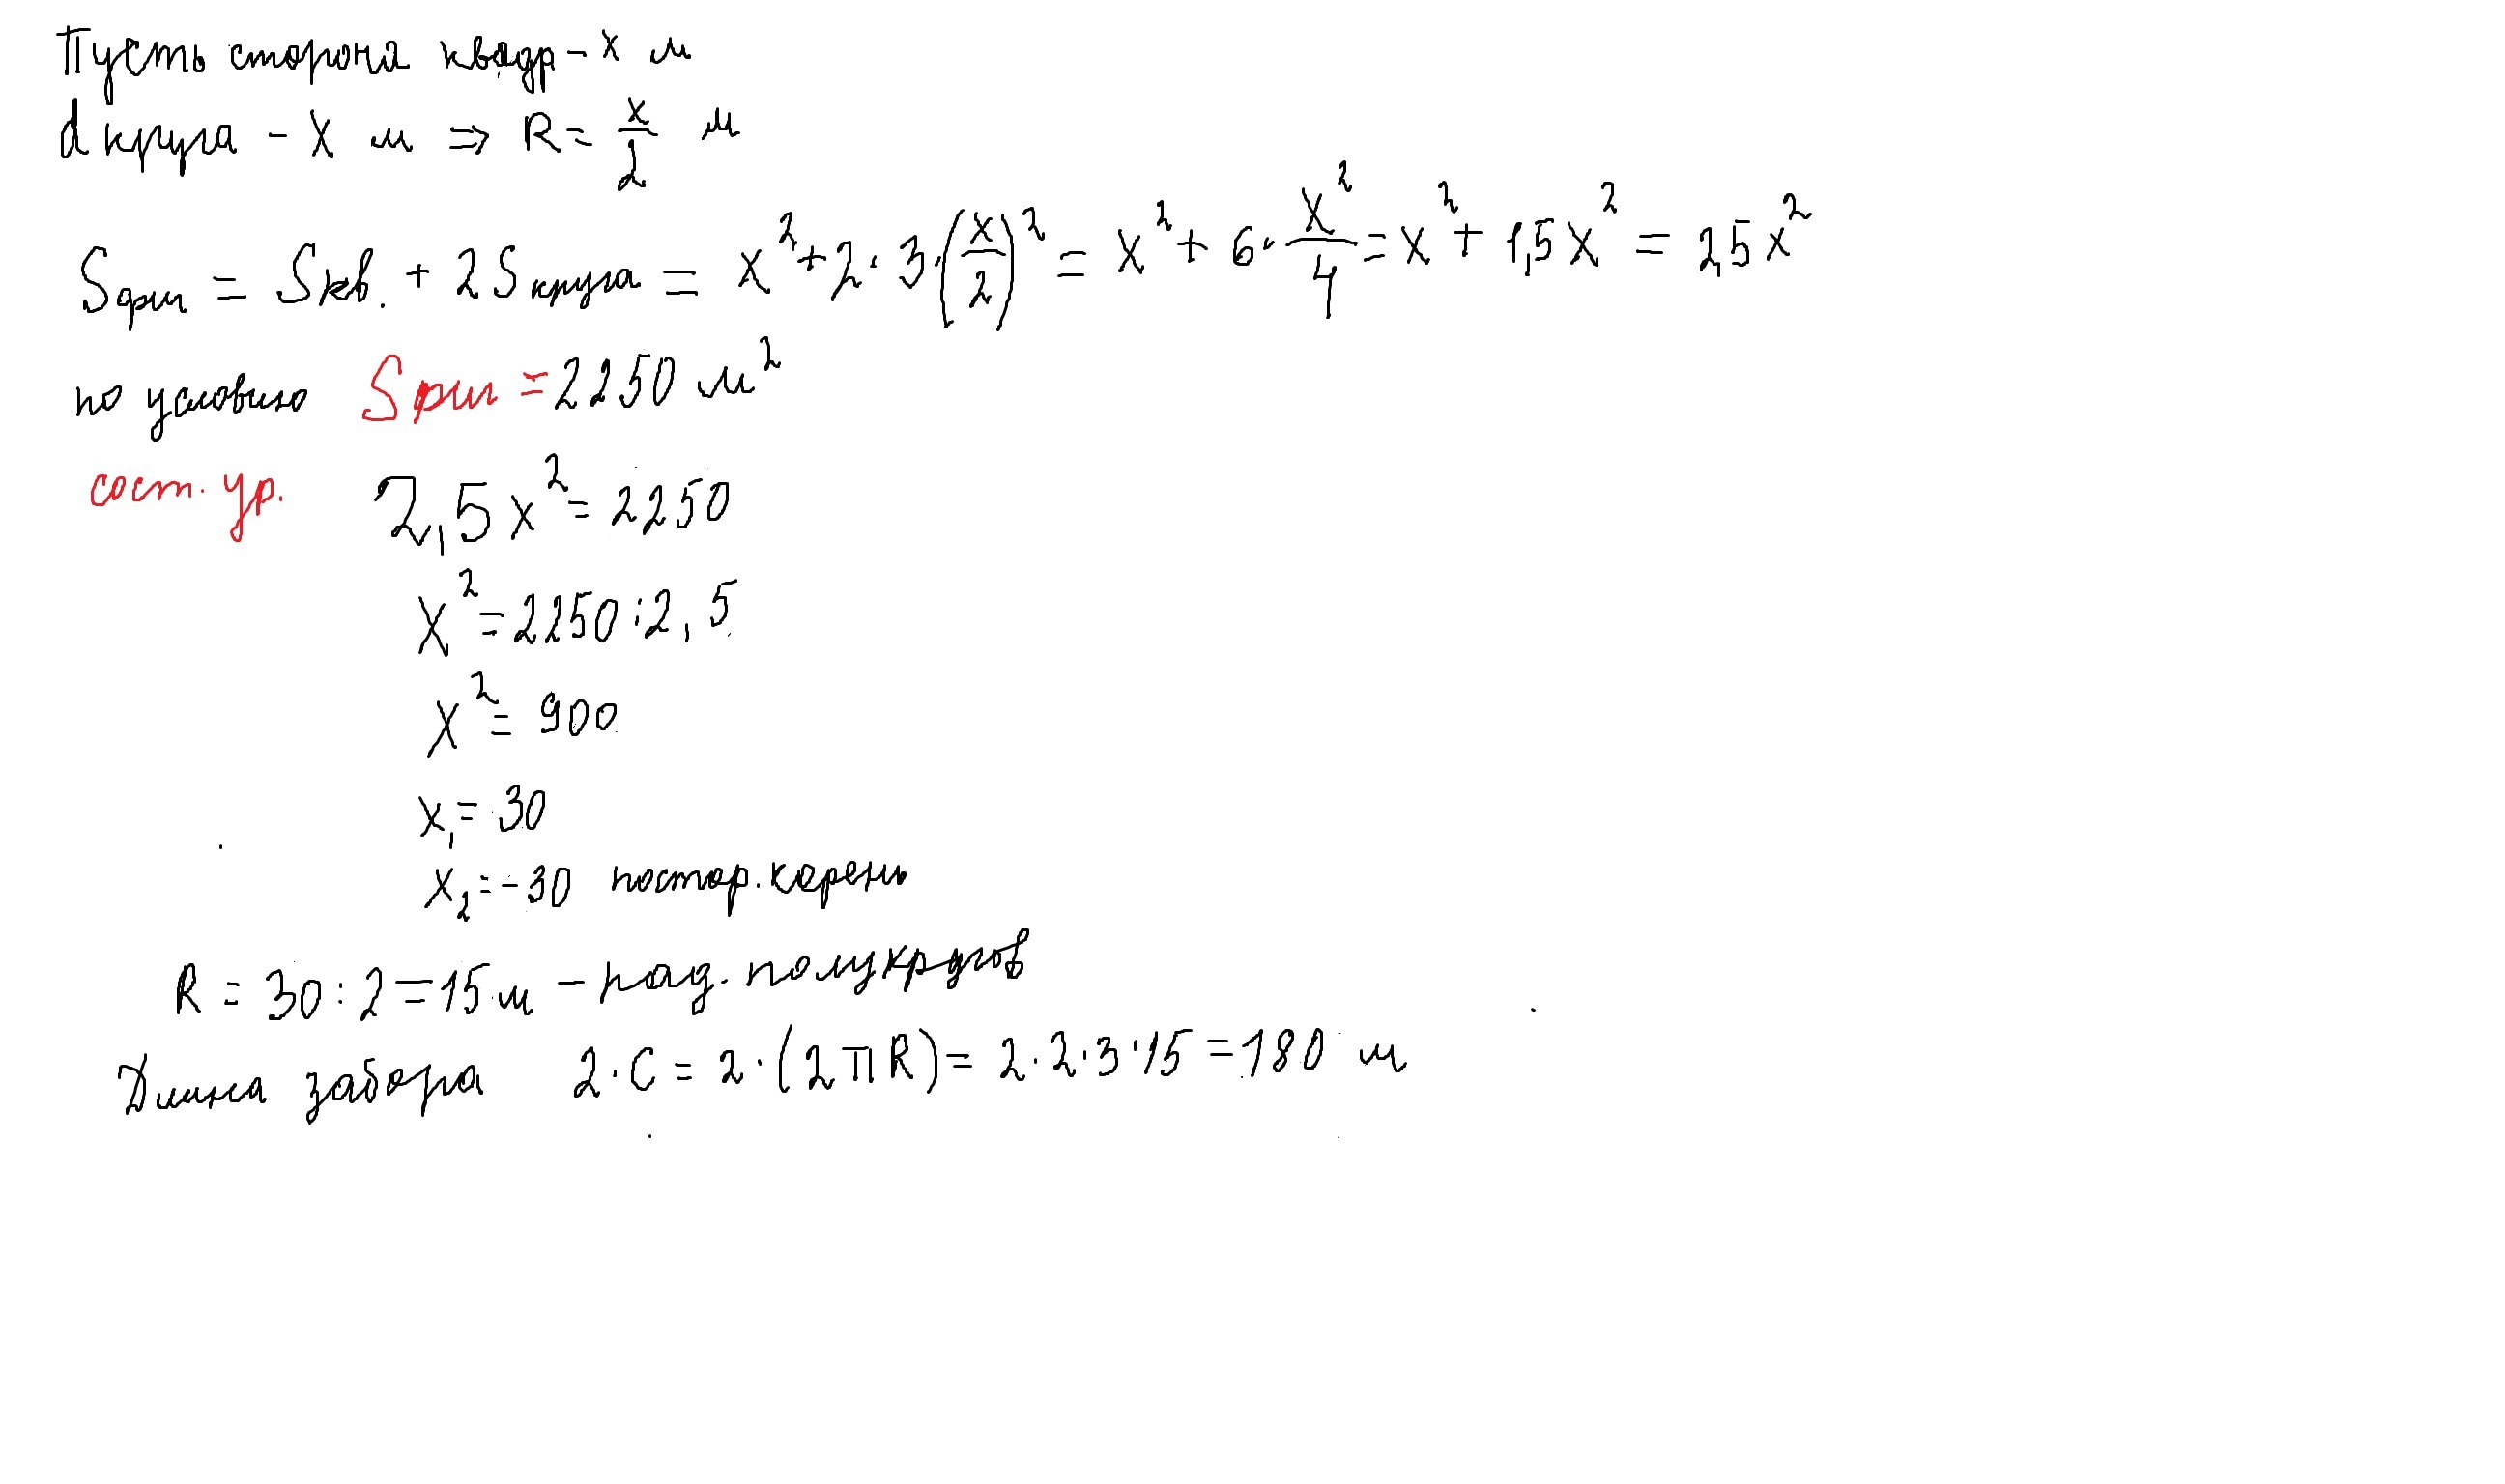 Пусть сторона квадр - x м
d круга - x м ⇒ R = x/2 м
Sфиг = Sкв. + 2Sкруга = x² + 2 · 3 · (x/2)² = x² + 6 · x²/4 = x² + 1,5x² = 2,5x²
по условию Sфиг = 2250 м²
сост. ур. 2,5x² = 2250
x² = 2250 : 2,5
x² = 900
x₁ = 30
x₂ = -30 постор. корень
R = 30 : 2 = 15 м - рад. полукругов
Длина забора 2 · C = 2 · (2πR) = 2 · 2 · 3 · 15 = 180 м